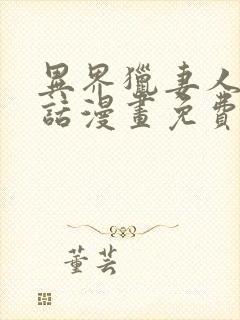 異界獵妻人
話漫畫免費
董芸